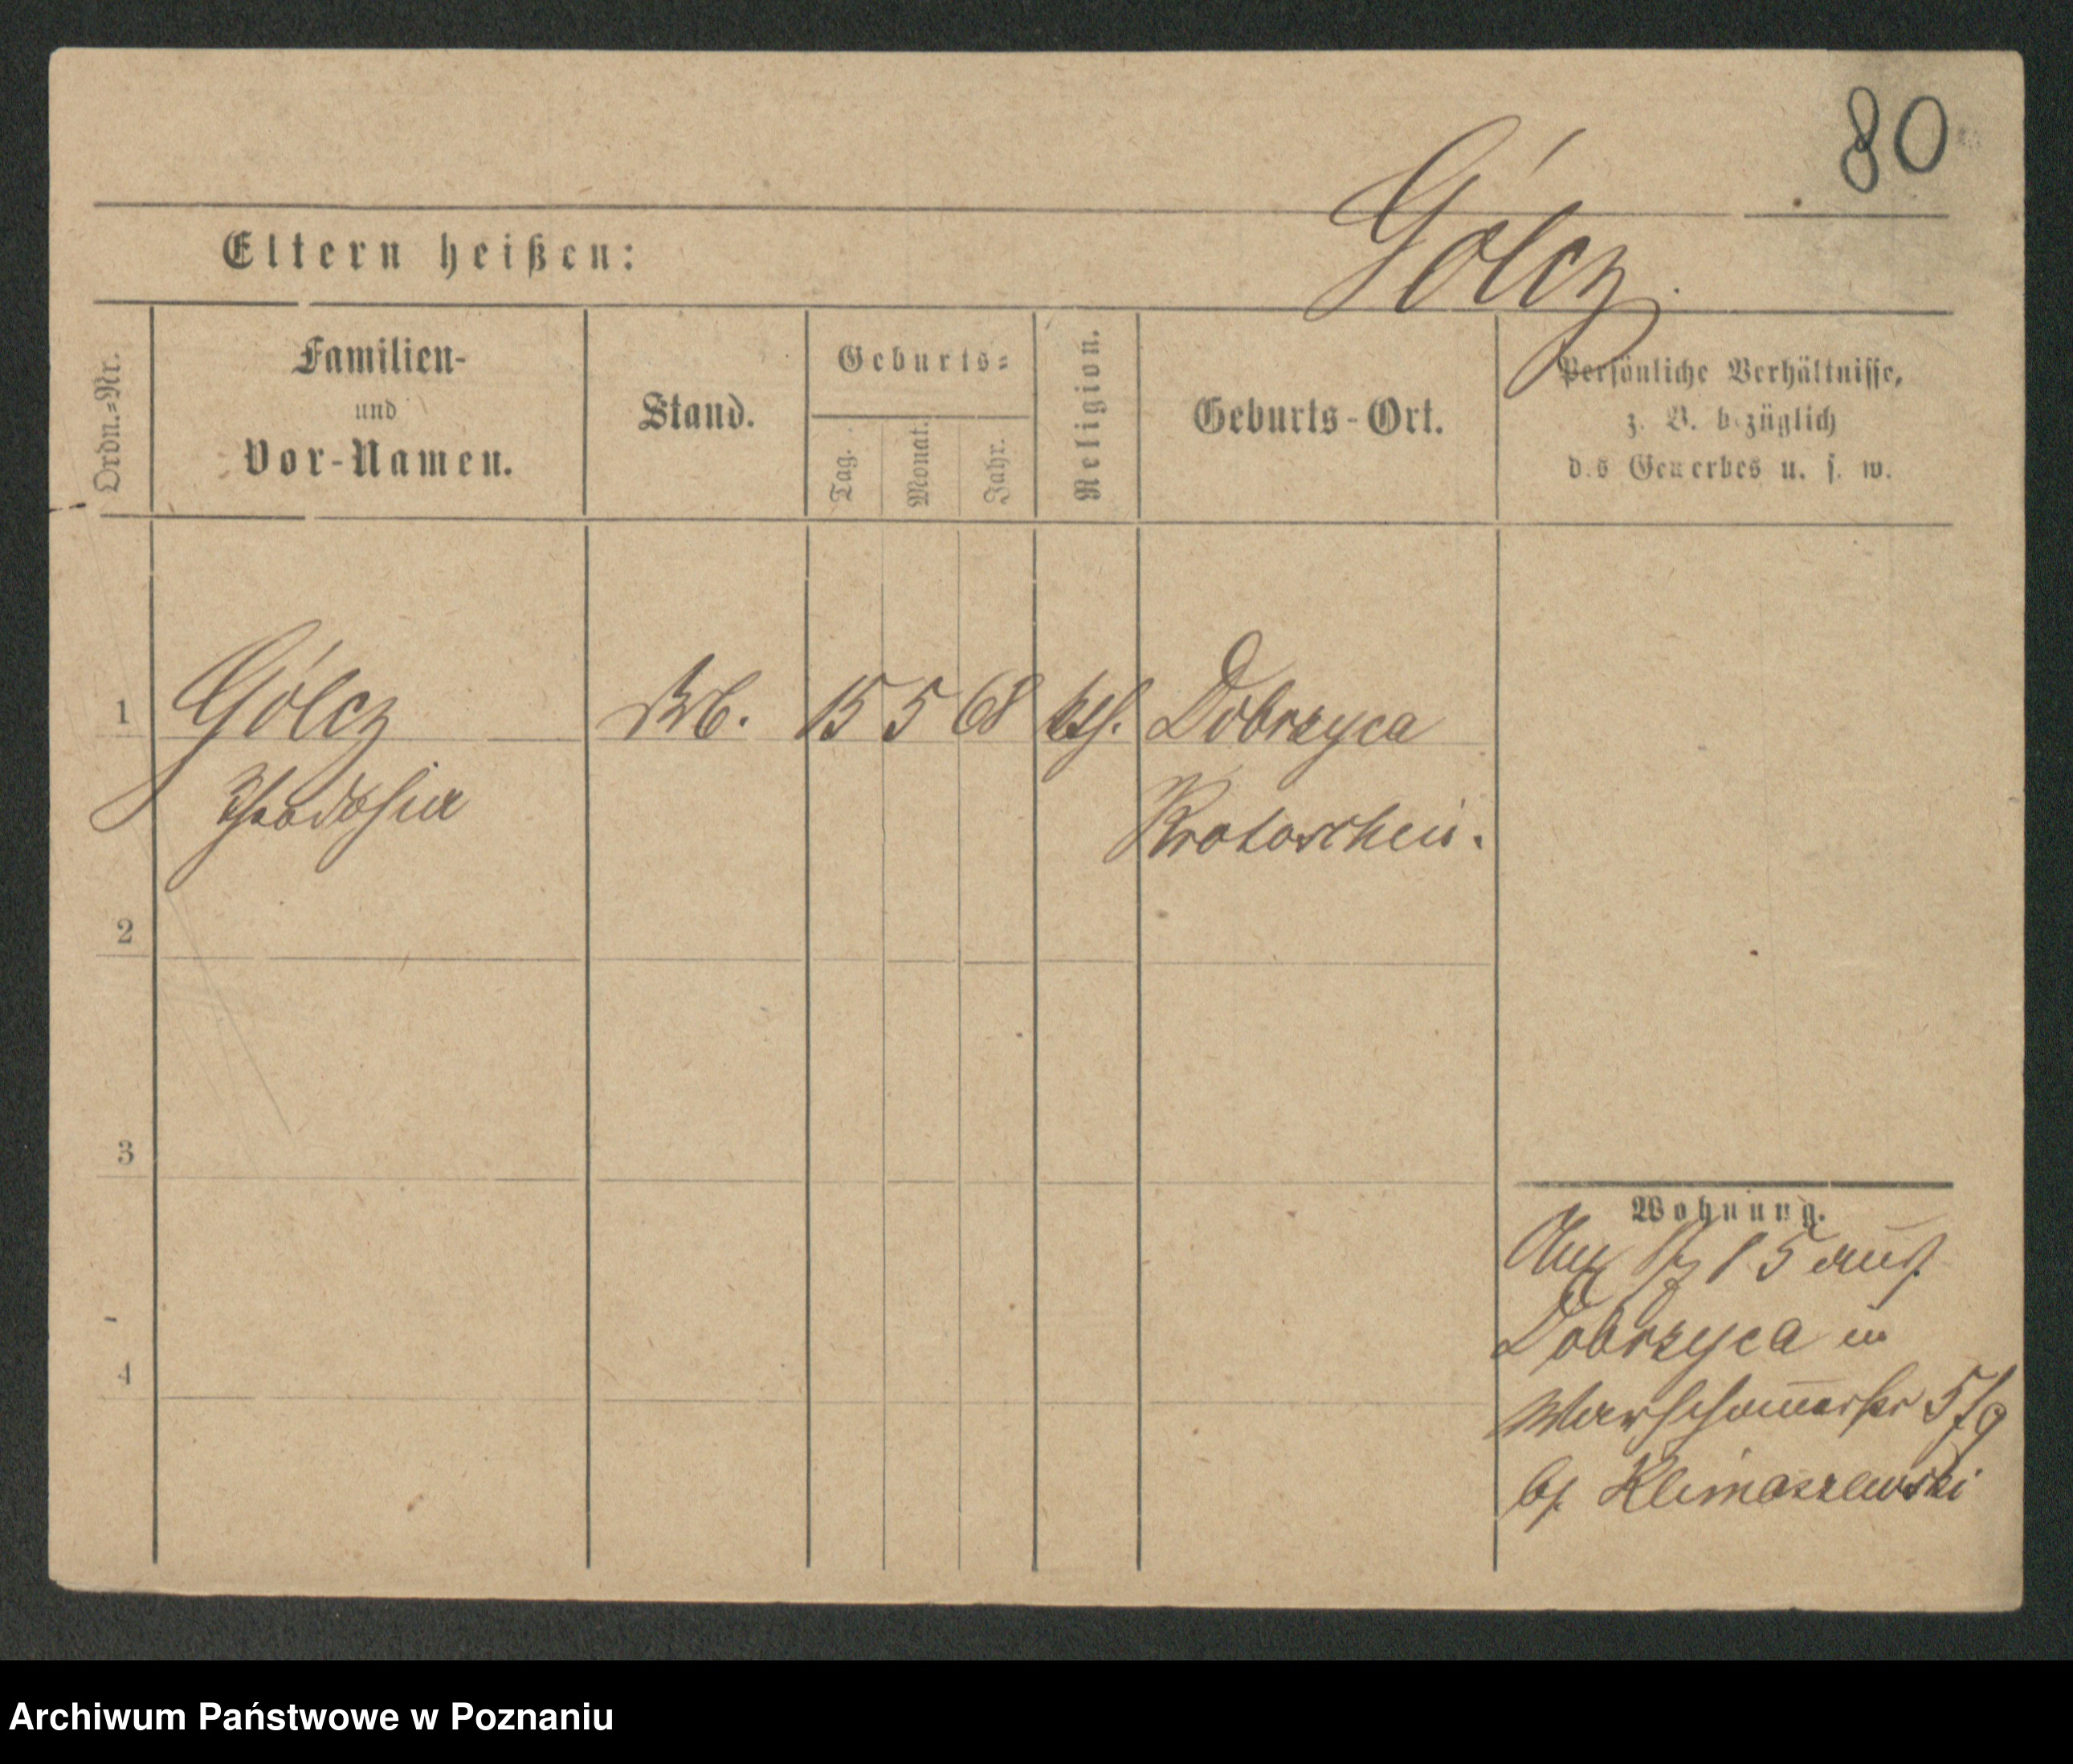 80
Gólcz.
Eltern heißen:
Ordn.=Nr.
Familien-
und
Vor-Namen.
Stand.
Geburts=
Tag.
Monat.
Jahr.
Religion.
Geburts-Ort.
Persönliche Verhältnisse,
z. B. bezüglich
des Gewerbes u. s. w.
1 Gólcz 15 5 68 kth. Dobrzyca
Theodosia Krotoschin.
2
3
Wohnung.
15 aus
Dobrzyca in
4
Warschauerstr 5/9
bei Klimaszewski
Archiwum Państwowe w Poznaniu